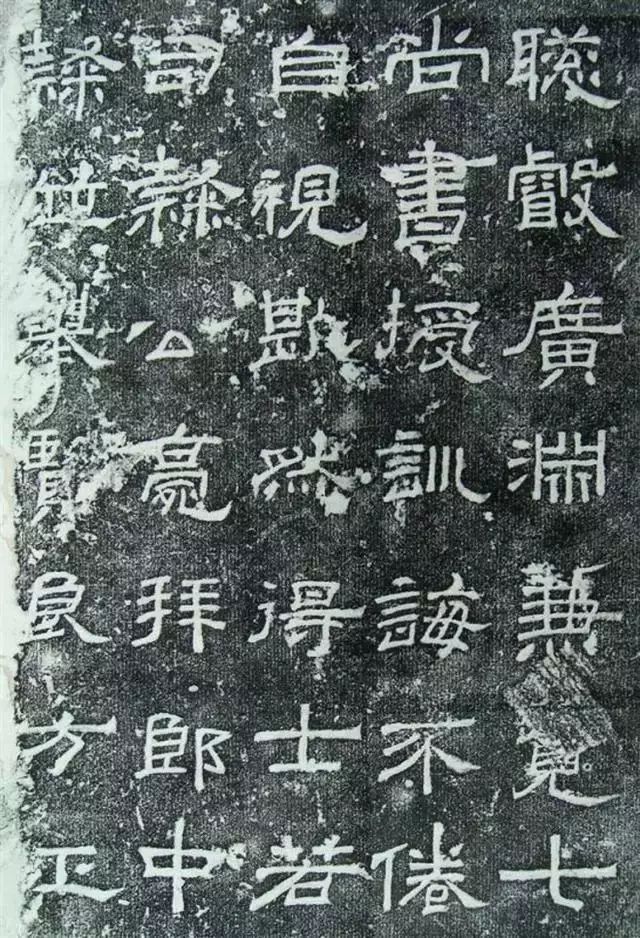 聰叡廣淵兼覽七
尚書授訓誨不倦
自視然得士若
司隸公亮拜郎中
隸舉賢良方正